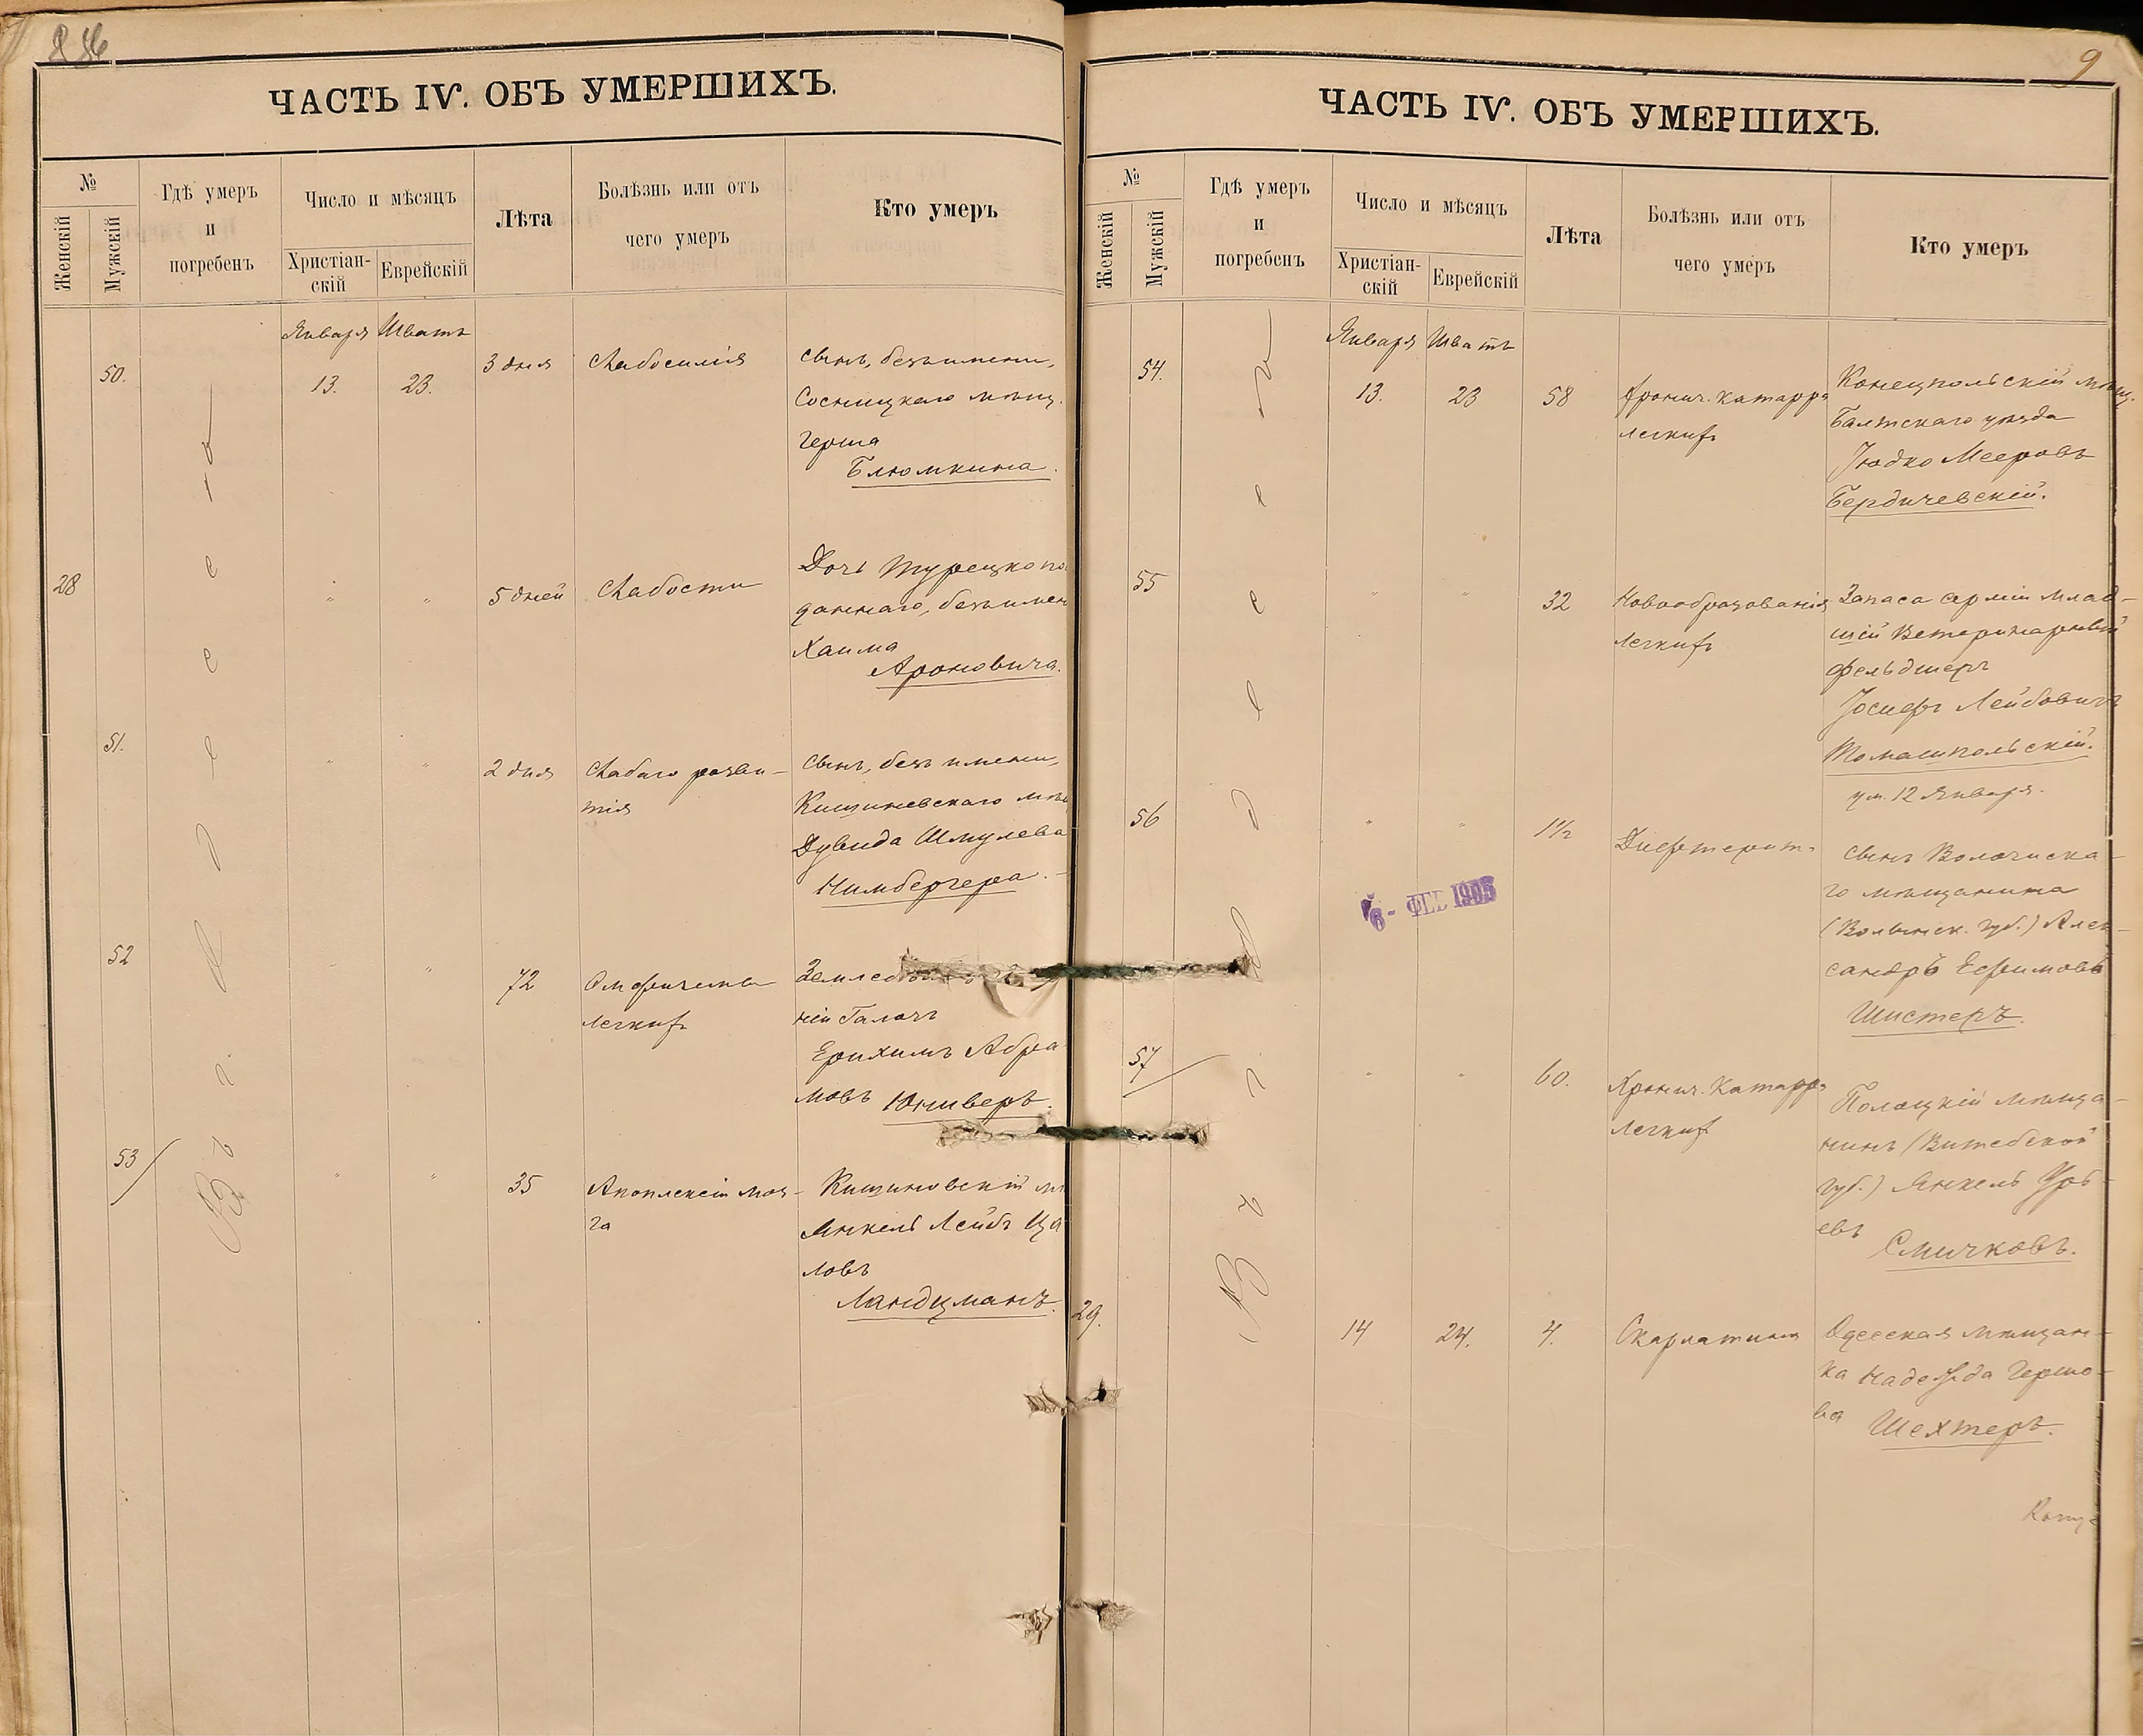 ЧАСТЬ IV. ОБЪ УМЕРШИХЪ.
№
Женскій
Мужскій
Гдѣ умеръ
и
погребенъ
Число и мѣсяцъ
Христіан-
скій
Еврейскій
Лѣта
Болѣзнь или отъ
чего умеръ
Кто умеръ
Января Шватъ
50.
13. 23.
3 дня
Слабосилія
Сынъ, безъ имени,
Сосницкаго мѣщ.
Герша
Блюмкина.
28
" "
5 дней
Слабости
Дочь турецкопо
даннаго, безъ имен
Хаима
Ароновича.
51.
" "
2 дня
Слабаго разви-
тія
Сынъ, безъ имени,
Кишиневскаго мѣщ
Дувида Шмулева
Нимбергера.
52
" "
72
легкихъ
ній Галацъ
Ерихимъ Абра
мовъ Юниверъ.
53
" "
35
Апоплексіи моз-
га
Кишиневскій мѣ
Янкель Лейбъ Ца
ловъ
Ландцманъ.
Въ Одессѣ
ЧАСТЬ IV. ОБЪ УМЕРШИХЪ.
9
№
Женскій
Мужскій
Гдѣ умеръ
и
погребенъ
Число и мѣсяцъ
Христіан-
скій
Еврейскій
Лѣта
Болѣзнь или отъ
чего умеръ
Кто умеръ
Января Шватъ
54.
13. 23
58
Хронич. катарръ
легкихъ
Конецпольскій мѣщ.
Балтскаго уѣзда
Іюдко Мееровъ
Бердичевскій.
55
" "
32
Новообразованія
легкихъ
Запаса арміи млад-
шій Ветеринарный
фельдшеръ
Іосифъ Лейбовичъ
Томашпольскій.
ум. 12 Января.
56
" "
1½
Дифтерит.
Сынъ Волочиска-
го мѣщанина
(Волынск. губ.) Алек-
сандръ Ефимовъ
Шистеръ.
6 - ФЕВ 1905
57
" "
60.
Хронич. Катарръ
легкихъ
Полоцкій мѣща-
нинъ (Витебской
губ.) Янкель Урь-
евъ
Смичковъ.
29.
14 24.
4.
Скарлатина
Одесская мѣщан-
ка Надежда Гершо-
ва Шехтеръ.